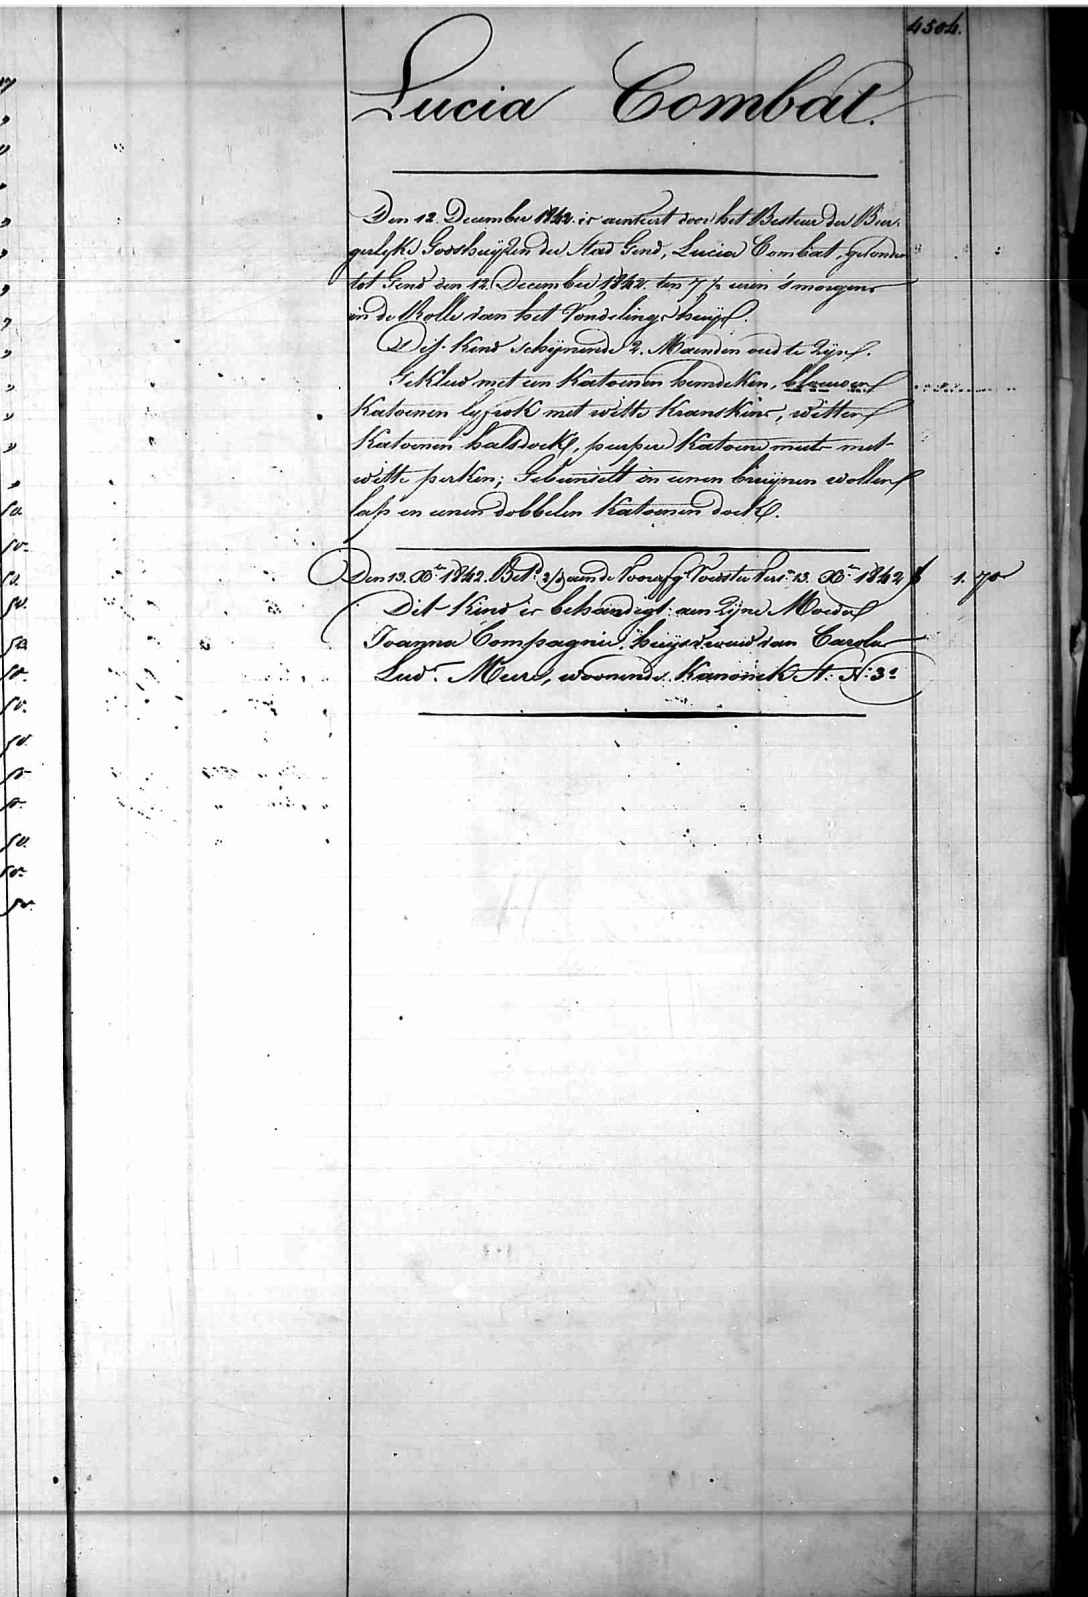 4504.
Lucia Combat.
Den 12. December 1842. is aenveert door het Bestuer der Bur-
gerlyke Godshuyzen der Stad Gend, Lucia Combat, gevonden
tot Gend den 12. December 1842. ten 7 ½ uren 's morgens
in de Rolle van het Vondelingshuys.
Dit Kind schynende 2. Maenden oud te zyn.
Gekleed met een Katoenen hemdeken, blauwen
Katoenen lyfrok met witte Kranskens, witten
Katoenen halsdoek, purper Katoene muts met
witte perken; Gebunselt in eenen bruynen wollen
lap en eenen dobbelen Katoenen doek.
Den 13. Xber 1842. Bet. aen de Voorzorg Voedster 13. Xber 1842 f 1. 70
Dit Kind is behandigt aen zyne Moeder
Joanna Compagnie, huysvrouw van Carolus
Lud. Meers, woonende Kanonick St. N. 31